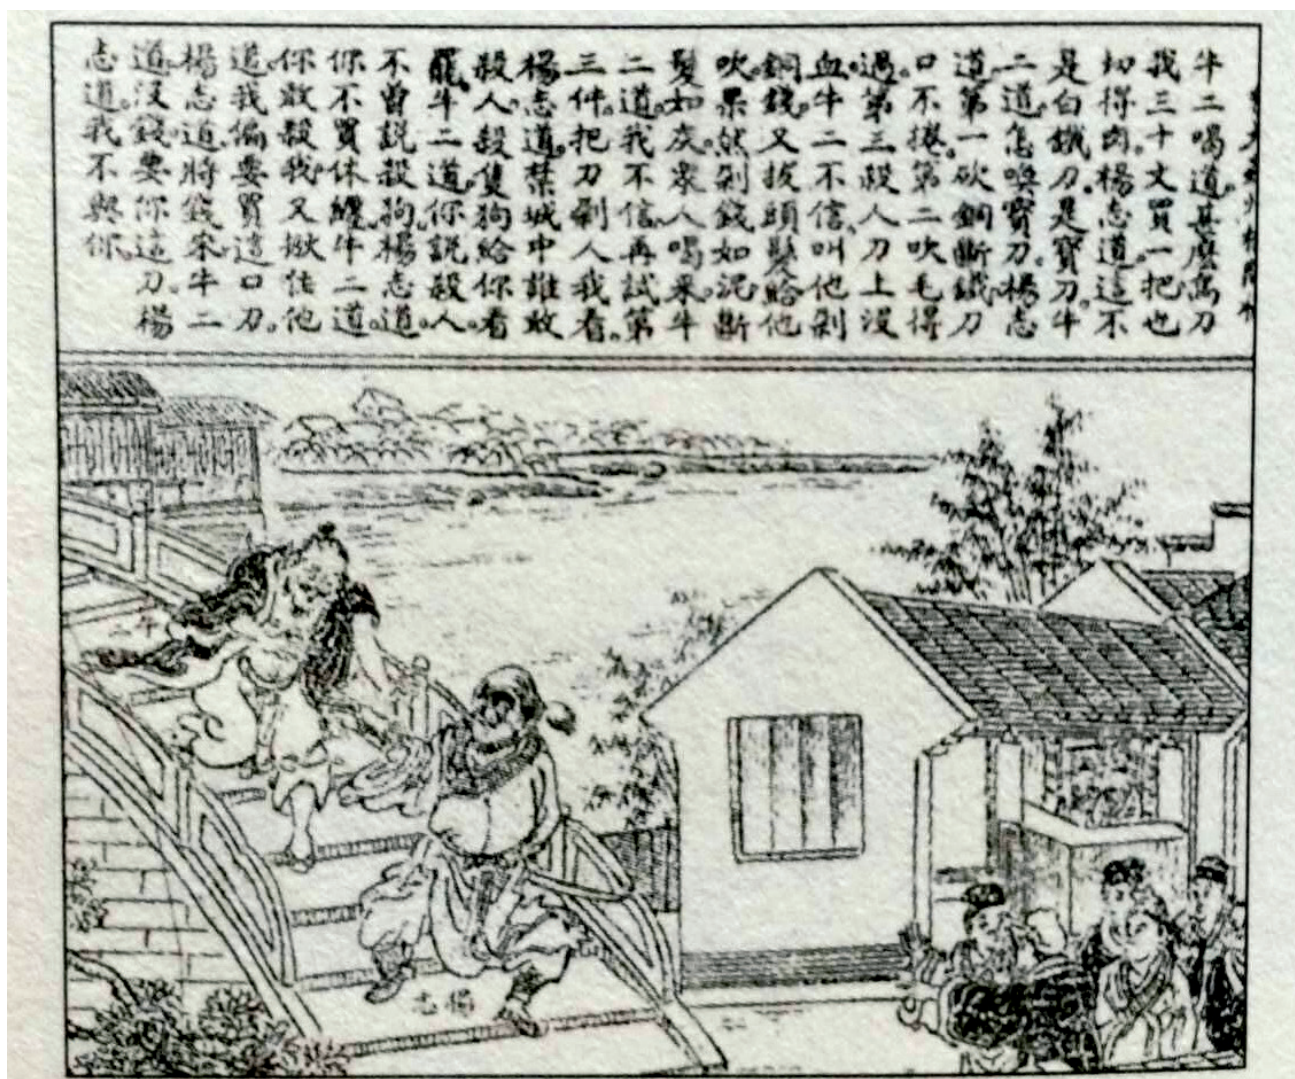 牛二喝道。甚麼鳥刀
我三十文買一把也
切得肉。楊志道。這不
是白鐵刀。是寶刀。牛
二道。怎喚寶刀。楊志
道。第一砍銅斷鐵。刀
口不捲。第二吹毛得
過。第三殺人刀上沒
血。牛二不信。叫他剁
銅錢。又拔頭髮給他
吹。果然剁錢如泥。斷
髮如灰。衆人喝采。牛
二道。我不信。再試第
三件。把刀剁人我看。
楊志道。禁城中誰敢
殺人。殺隻狗給你看
罷。牛二道。你說殺人。
不曾說殺狗。楊志道。
你不買休纏。牛二道
你敢殺我。又揪住他
道。我偏要買這口刀。
楊志道。將錢來。牛二
道。沒錢。要你這刀。楊
志道。我不與你。
牛二
楊志